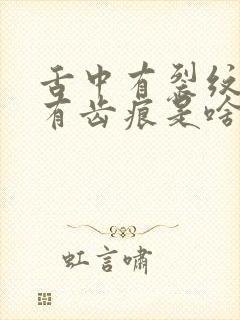 舌中有裂纹
有齿痕是啥
虹言啸